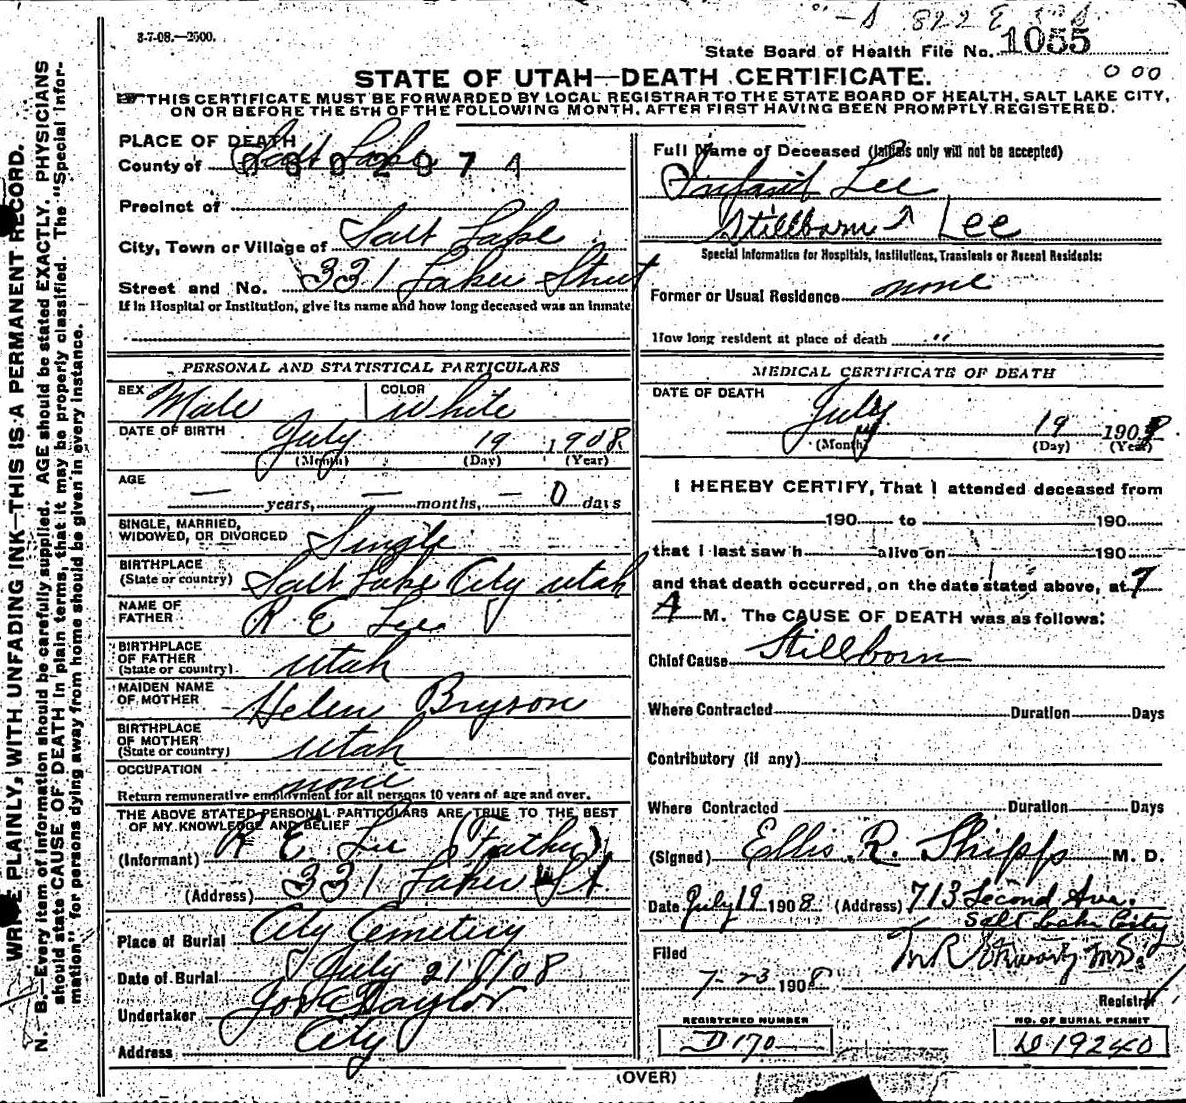 3-7-08.—2500.
822 E
State Board of Health File No. 1055
STATE OF UTAH—DEATH CERTIFICATE.
000
THIS CERTIFICATE MUST BE FORWARDED BY LOCAL REGISTRAR TO THE STATE BOARD OF HEALTH, SALT LAKE CITY,
ON OR BEFORE THE 5TH OF THE FOLLOWING MONTH, AFTER FIRST HAVING BEEN PROMPTLY REGISTERED.
WRITE PLAINLY, WITH UNFADING INK—THIS IS A PERMANENT RECORD.
N. B.—Every item of information should be carefully supplied. AGE should be stated EXACTLY. PHYSICIANS
should state CAUSE OF DEATH in plain terms, that it may be properly classified. The "Special Infor-
mation" for persons dying away from home should be given in every instance.
PLACE OF DEATH
County of Salt Lake
Precinct of
City, Town or Village of Salt Lake
Street and No. 331 Street
If in Hospital or Institution, give its name and how long deceased was an inmate
PERSONAL AND STATISTICAL PARTICULARS
SEX Male COLOR White
DATE OF BIRTH July 19 1908
(Month) (Day) (Year)
AGE
— years, — months, — 0 days
SINGLE, MARRIED,
WIDOWED, OR DIVORCED Single
BIRTHPLACE
(State or country) Salt Lake City Utah
NAME OF
FATHER R E Lee
BIRTHPLACE
OF FATHER
(State or country) Utah
MAIDEN NAME
OF MOTHER Helen Bryson
BIRTHPLACE
OF MOTHER
(State or country) Utah
OCCUPATION none
Return remunerative employment for all persons 10 years of age and over.
THE ABOVE STATED PERSONAL PARTICULARS ARE TRUE TO THE BEST
OF MY KNOWLEDGE AND BELIEF
(Informant) R E Lee (Father)
(Address) 331 St
Place of Burial City Cemetery
Date of Burial July 21/08
Undertaker Taylor
Address City
Full Name of Deceased (Initials only will not be accepted)
Infant Lee
Stillborn Lee
Special Information for Hospitals, Institutions, Transients or Recent Residents:
Former or Usual Residence none
How long resident at place of death "
MEDICAL CERTIFICATE OF DEATH
DATE OF DEATH
July 19 1908
(Month) (Day) (Year)
I HEREBY CERTIFY, That I attended deceased from
190 to 190
that I last saw h alive on 190
and that death occurred, on the date stated above, at 7
A M. The CAUSE OF DEATH was as follows:
Chief Cause Stillborn
Where Contracted Duration Days
Contributory (if any)
Where Contracted Duration Days
(Signed) Ellis. R. Shipp M. D.
Date July 19 1908 (Address) 713 Second Ave.
Salt Lake City
Filed
7-23 1908
Registrar
REGISTERED NUMBER
D170
NO. OF BURIAL PERMIT
D 19240
(OVER)